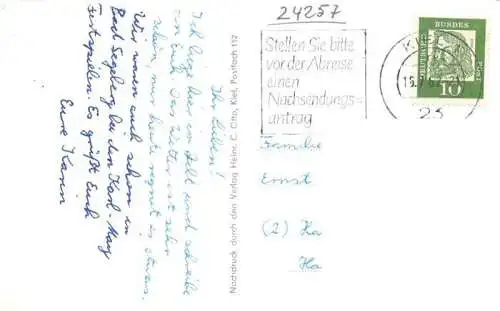 24257
Stellen Sie bitte
vor der Abreise
einen
Nachsendungs-
antrag
DEUTSCHE
BUNDES
POST
10
23
Ihr Lieben!
Ich liege hier im Zelt und schreibe
ein Das Wetter ist sehr
schön, nur heute regnet es etwas.
Wir waren auch schon in
Bad Segeberg bei den Karl-May
Festspielen. Es grüßt Euch
Eure Karin
Nachdruck durch den Verlag Heinr. C. Otto, Kiel, Postfach 112
Familie
Ernst
(2) Ha
Ha